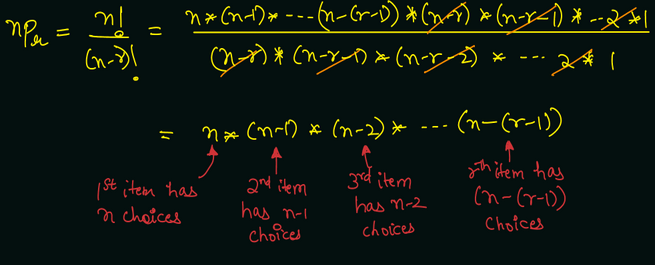 nPr = n! / (n-r)! = n*(n-1)* ---(n-(r-1))*(n-r)*(n-r-1)* --2*1 / (n-r)*(n-r-1)*(n-r-2) * --- 2*1
= n*(n-1)*(n-2)* --- (n-(r-1))
1st item has n choices
2nd item has n-1 choices
3rd item has n-2 choices
rth item has (n-(r-1)) choices